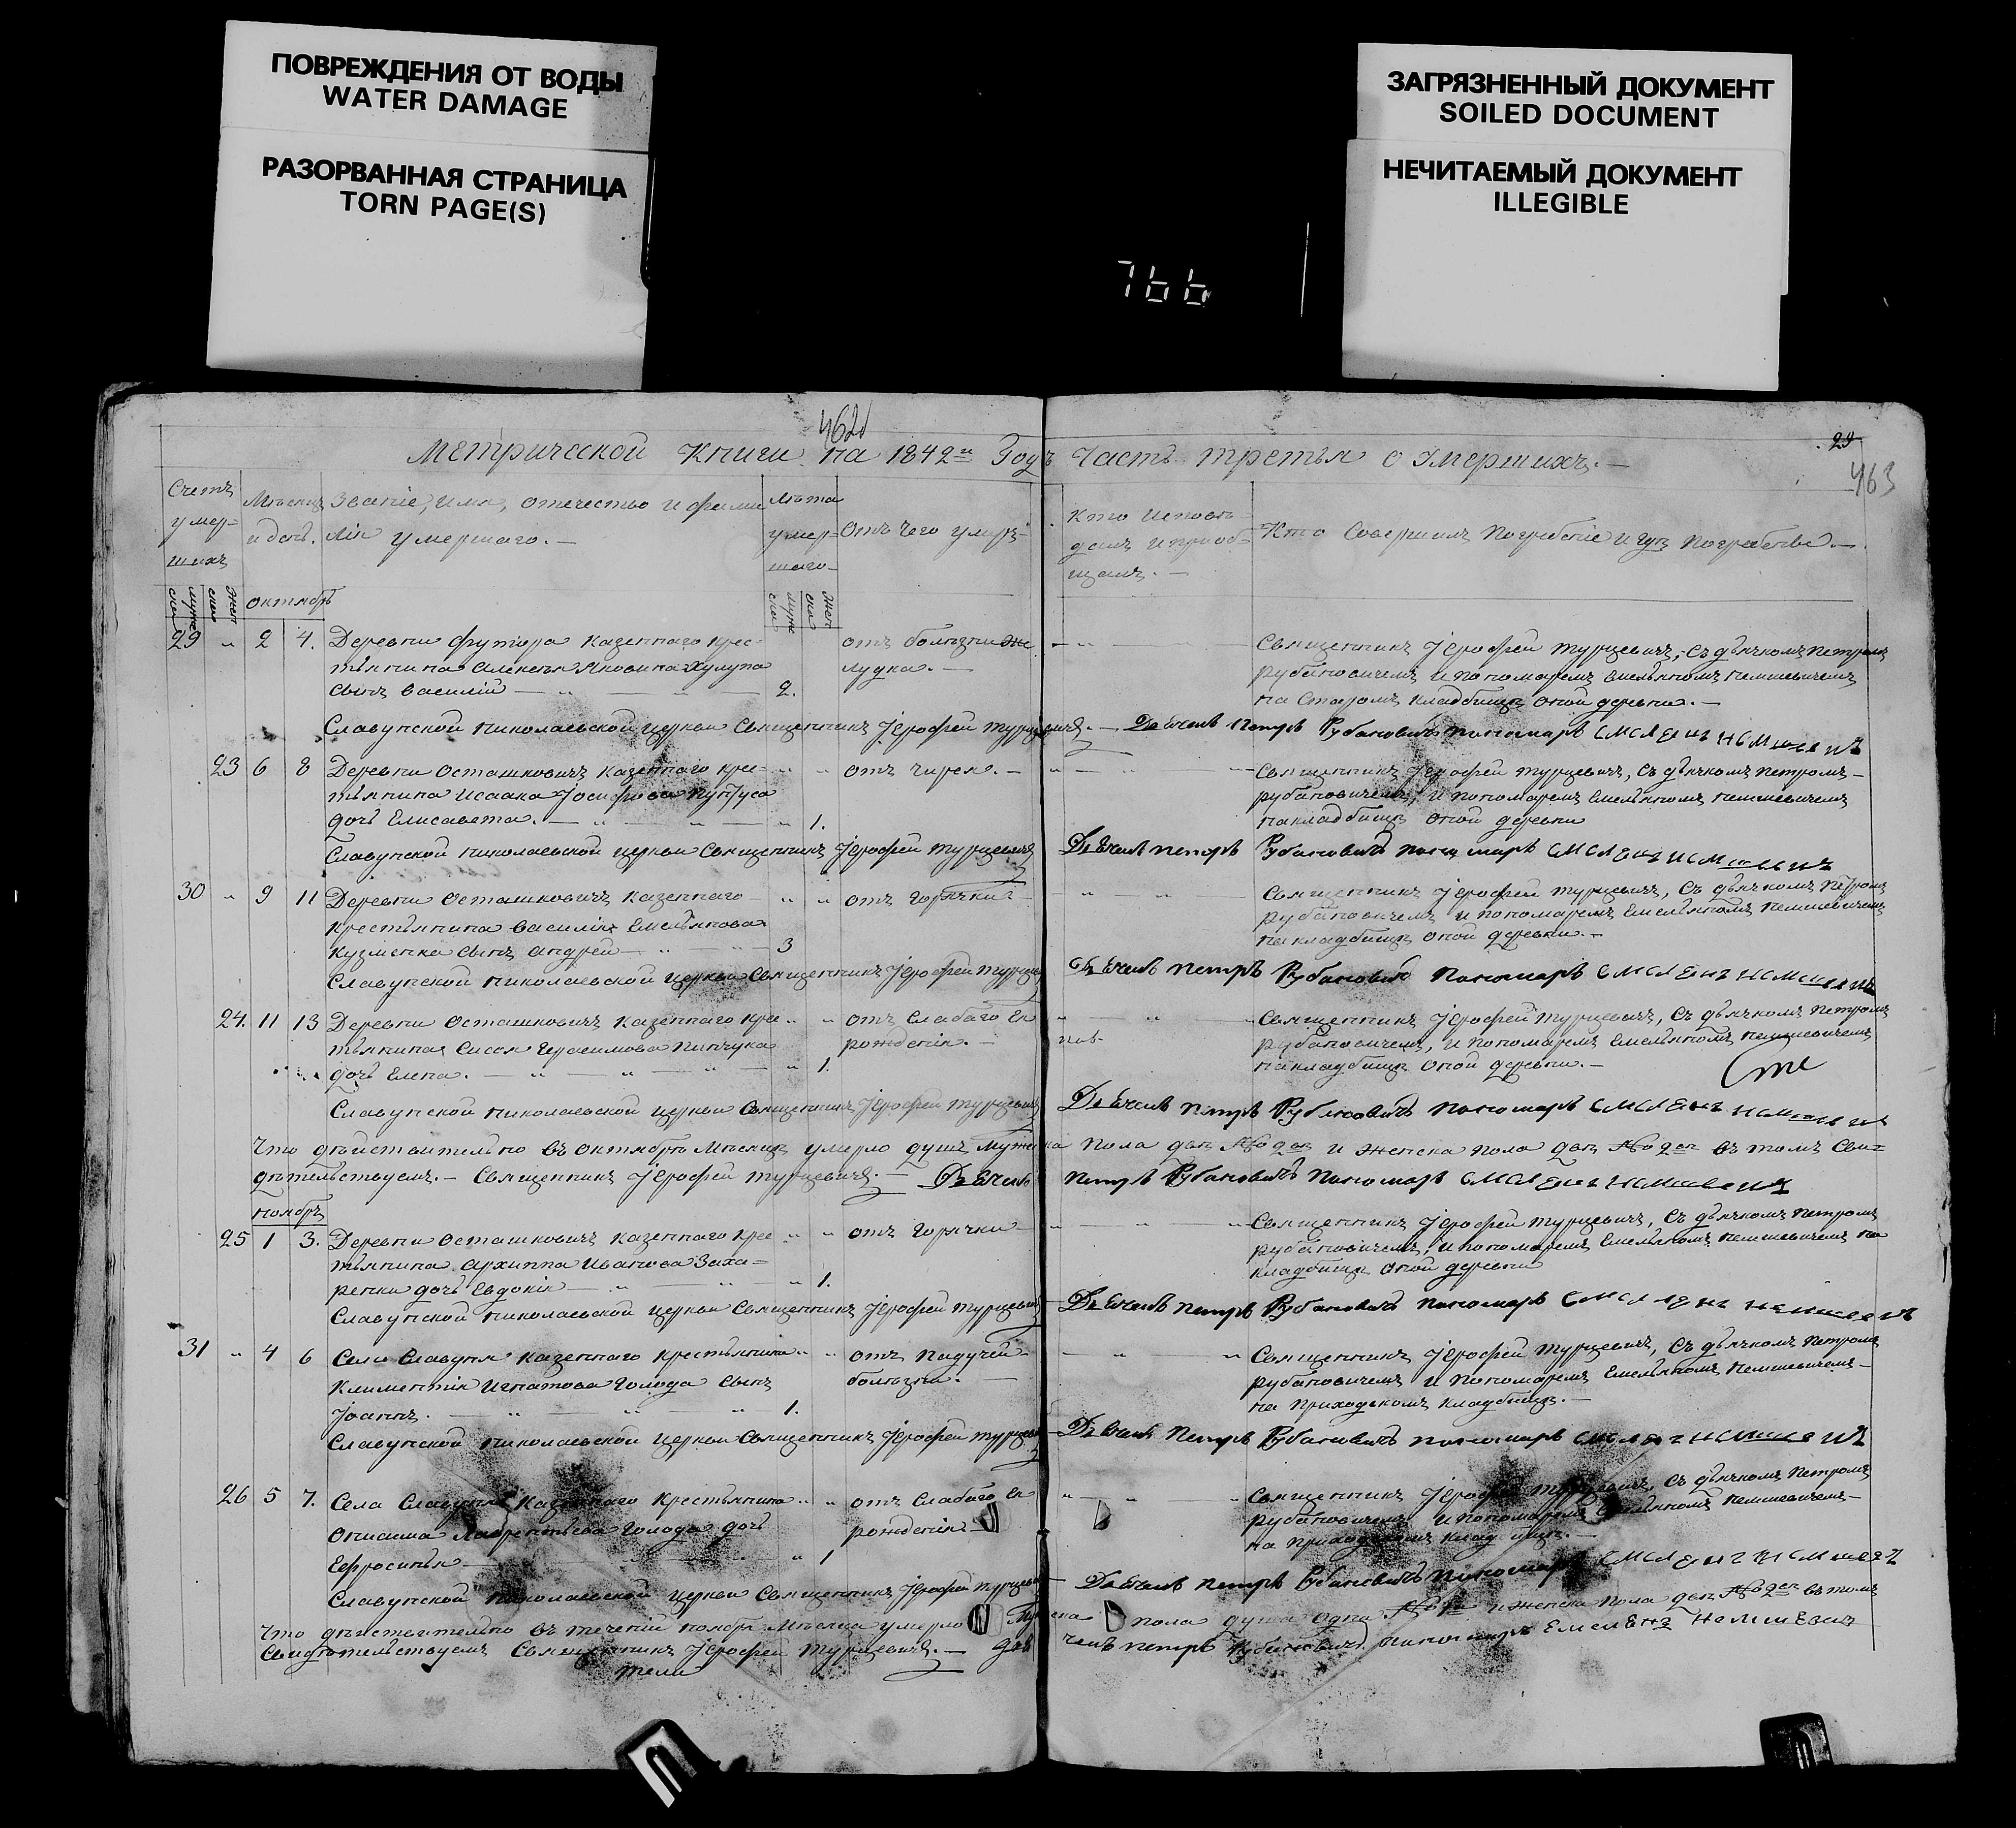 ПОВРЕЖДЕНИЯ ОТ ВОДЫ
WATER DAMAGE
РАЗОРВАННАЯ СТРАНИЦА
TORN PAGE(S)
ЗАГРЯЗНЕННЫЙ ДОКУМЕНТ
SOILED DOCUMENT
НЕЧИТАЕМЫЙ ДОКУМЕНТ
ILLEGIBLE
766
462
29
463
Метрической Книги на 1842й Годъ Часть третья о Умершихъ.
Счетъ
умер-
шихъ
Мѣсяц
и день.
Званіе, имя, отечество и фами
лія умершаго.
Лѣта
умер-
шаго
Отъ чего умеръ
Кто исповѣ-
далъ и приоб-
щалъ.
Кто Совершалъ Погребеніе и гдѣ Погребены.
октябрь
29 " 2 4. Деревни Футора казеннаго крес-
тьянина Алексѣя Яковина
сынъ Василій 2.
отъ болѣзни же
лудка.
Священникъ Іерофей Турцевичъ, съ дьячкомъ Петромъ
Рубановичемъ и пономаремъ Емельяномъ Немшевичемъ
на Старомъ Кладбищѣ оной деревни.
Славупской Николаевской церкви Священникъ Іерофей Турцевичъ. Дьячекъ Петръ Рубановичъ пономарь
23 6 8 Деревни Осташковичъ казеннаго крес-
тьянина Исаака Іосифова
дочь Елисавета. 1.
отъ чирея.
Священникъ Іерофей Турцевичъ, съ дьячкомъ Петромъ
Рубановичемъ, и пономаремъ Емельяномъ Немшевичемъ
на кладбищѣ оной деревни
Славупской Николаевской церкви Священникъ Іерофей Турцевичъ Дьячекъ Петръ Рубановичъ пономарь
30 " 9 11 Деревни Осташковичъ казеннаго
крестьянина Василія Емельянова
Кузменка сынъ Андрей 3
отъ горячки
Священникъ Іерофей Турцевичъ, съ дьячкомъ Петромъ
Рубановичемъ и пономаремъ Емельяномъ Немшевичемъ
на кладбищѣ оной деревни.
Славупской Николаевской церкви Священникъ Іерофей Дьячекъ Петръ Рубановичъ пономарь
24. 11 13 Деревни Осташковичъ казеннаго крес
тьянина Сисоя Герасимова Пинчука
дочь Елена. 1.
отъ слабаго
рожденія.
Священникъ Іерофей Турцевичъ, съ дьячкомъ Петромъ
Рубановичемъ, и пономаремъ Емельяномъ Немшевичемъ
на кладбищѣ оной деревни.
Славупской Николаевской церкви Священникъ Іерофей Турцевичъ Дьячекъ Петръ Рубановичъ пономарь
Что дѣйствительно въ октябрѣ мѣсяцѣ умерло душъ мужеска пола двѣ № 2 и женска пола двѣ № 2 въ томъ сви-
дѣтельствуемъ. Священникъ Іерофей Турцевичъ. Дьячекъ Петръ Рубановичъ пономарь
ноябрь
25 1 3. Деревни Осташковичъ казеннаго крес
тьянина Архиппа Иванова Заха-
ренки дочь Евдокія 1.
отъ горячки
Священникъ Іерофей Турцевичъ, съ дьячкомъ Петромъ
Рубановичемъ, и пономаремъ Емельяномъ Немшевичемъ на
кладбищѣ оной деревни
Славупской Николаевской церкви Священникъ Іерофей Турцевичъ Дьячекъ Петръ Рубановичъ пономарь
31 " 4 6 Села Славупя казеннаго крестьянина
Климентія Игнатова Голода сынъ
Іоаннъ. 1.
отъ падучей
болѣзни.
Священникъ Іерофей Турцевичъ, съ дьячкомъ Петромъ
Рубановичемъ и пономаремъ Емельяномъ Немшевичемъ
на приходскомъ кладбищѣ.
Славупской Николаевской церкви Священникъ Іерофей Дьячекъ Петръ Рубановичъ пономарь
26 5 7. Села Славупя казеннаго крестьянина
Онисима Лаврентьева Голода дочь
Ефросинья 1
отъ слабаго
рожденія
Священникъ Іерофей Турцевичъ, съ дьячкомъ Петромъ
Рубановичемъ и пономаремъ Емельяномъ Немшевичемъ
на приходскомъ кладбищѣ.
Славупской Николаевской церкви Священникъ Іерофей Дьячекъ Петръ Рубановичъ пономарь
Что дѣйствительно въ теченіи ноября мѣсяца умерло пола душа одна и женска пола двѣ въ томъ
Свидѣтельствуемъ Священникъ Іерофей Турцевичъ. Дьячекъ Петръ Рубановичъ пономарь Емельянъ Немшевичъ